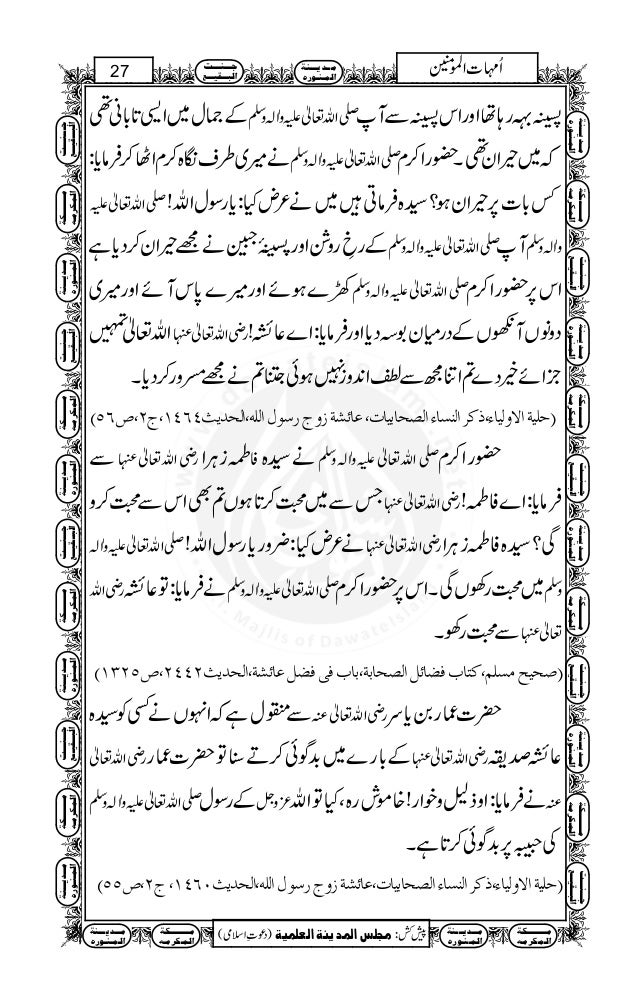 اُمہات المؤمنین
27
پسینہ بہہ رہا تھا اور اس پسینہ سے آپ صلی اللہ تعالیٰ علیہ والہ وسلم کے جمال میں ایسی تابانی تھی
کہ میں حیران تھی۔ حضور اکرم صلی اللہ تعالیٰ علیہ والہ وسلم نے میری طرف نگاہ کرم اٹھا کر فرمایا:
کس بات پر حیران ہو؟ سیدہ فرماتی ہیں میں نے عرض کیا: یارسول اللہ! صلی اللہ تعالیٰ علیہ
والہ وسلم آپ صلی اللہ تعالیٰ علیہ والہ وسلم کے رخِ روشن اور پسینۂ جبین نے مجھے حیران کر دیا ہے
اس پر حضور اکرم صلی اللہ تعالیٰ علیہ والہ وسلم کھڑے ہوئے اور میرے پاس آئے اور میری
دونوں آنکھوں کے درمیان بوسہ دیا اور فرمایا: اے عائشہ! رضی اللہ تعالیٰ عنہا اللہ تعالیٰ تمہیں
جزائے خیر دے تم اتنا مجھ سے لطف اندوز نہیں ہوئی جتنا تم نے مجھے مسرور کر دیا۔
(حلیة الاولیاء،ذکر النساء الصحابیات، عائشة زوج رسول الله،الحدیث۱٤٦٤،ج۲،ص۵٦)
حضور اکرم صلی اللہ تعالیٰ علیہ والہ وسلم نے سیدہ فاطمہ زہرا رضی اللہ تعالیٰ عنہا سے
فرمایا: اے فاطمہ! رضی اللہ تعالیٰ عنہا جس سے میں محبت کرتا ہوں تم بھی اس سے محبت کرو
گی؟ سیدہ فاطمہ زہرا رضی اللہ تعالیٰ عنہا نے عرض کیا: ضرور یارسول اللہ! صلی اللہ تعالیٰ علیہ والہ
وسلم میں محبت رکھوں گی۔ اس پر حضور اکرم صلی اللہ تعالیٰ علیہ والہ وسلم نے فرمایا: تو عائشہ رضی اللہ
تعالیٰ عنہا سے محبت رکھو۔
(صحیح مسلم،کتاب فضائل الصحابة،باب فی فضل عائشة،الحدیث۲٤٤۲،ص۱۳۲۵)
حضرت عمار بن یاسر رضی اللہ تعالیٰ عنہ سے منقول ہے کہ انہوں نے کسی کو سیدہ
عائشہ صدیقہ رضی اللہ تعالیٰ عنہا کے بارے میں بدگوئی کرتے سنا تو حضرت عمار رضی اللہ تعالیٰ
عنہ نے فرمایا: او ذلیل و خوار! خاموش رہ، کیا تو اللہ عزوجل کے رسول صلی اللہ تعالیٰ علیہ والہ وسلم
کی حبیبہ پر بدگوئی کرتا ہے۔
(حلیة الاولیاء،ذکر النساء الصحابیات،عائشة زوج رسول الله،الحدیث۱٤٦۰، ج۲،ص۵۵)
پیش کش: مجلس المدینة العلمیة (دعوتِ اسلامی)